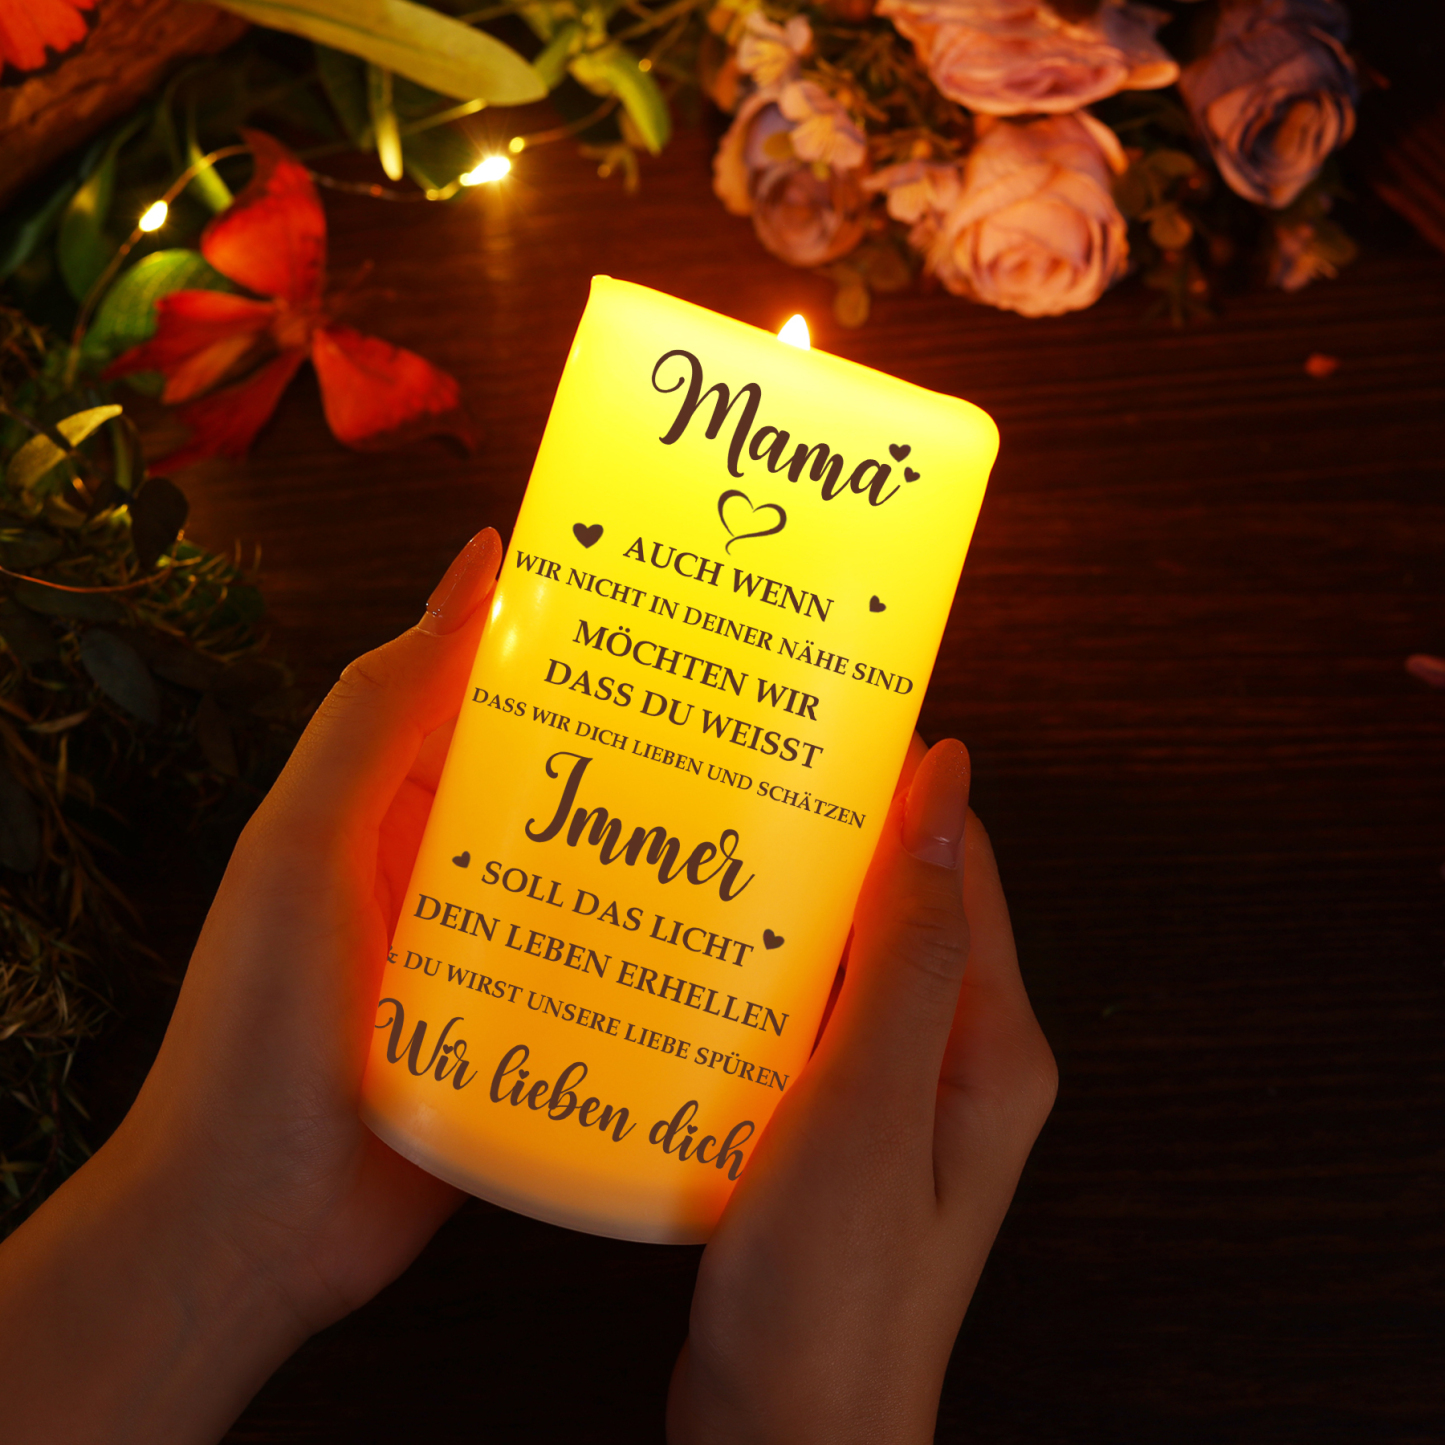 Mama
AUCH WENN
WIR NICHT IN DEINER NÄHE SIND
MÖCHTEN WIR
DASS DU WEISST
DASS WIR DICH LIEBEN UND SCHÄTZEN
Immer
SOLL DAS LICHT
DEIN LEBEN ERHELLEN
& DU WIRST UNSERE LIEBE SPÜREN
Wir lieben dich